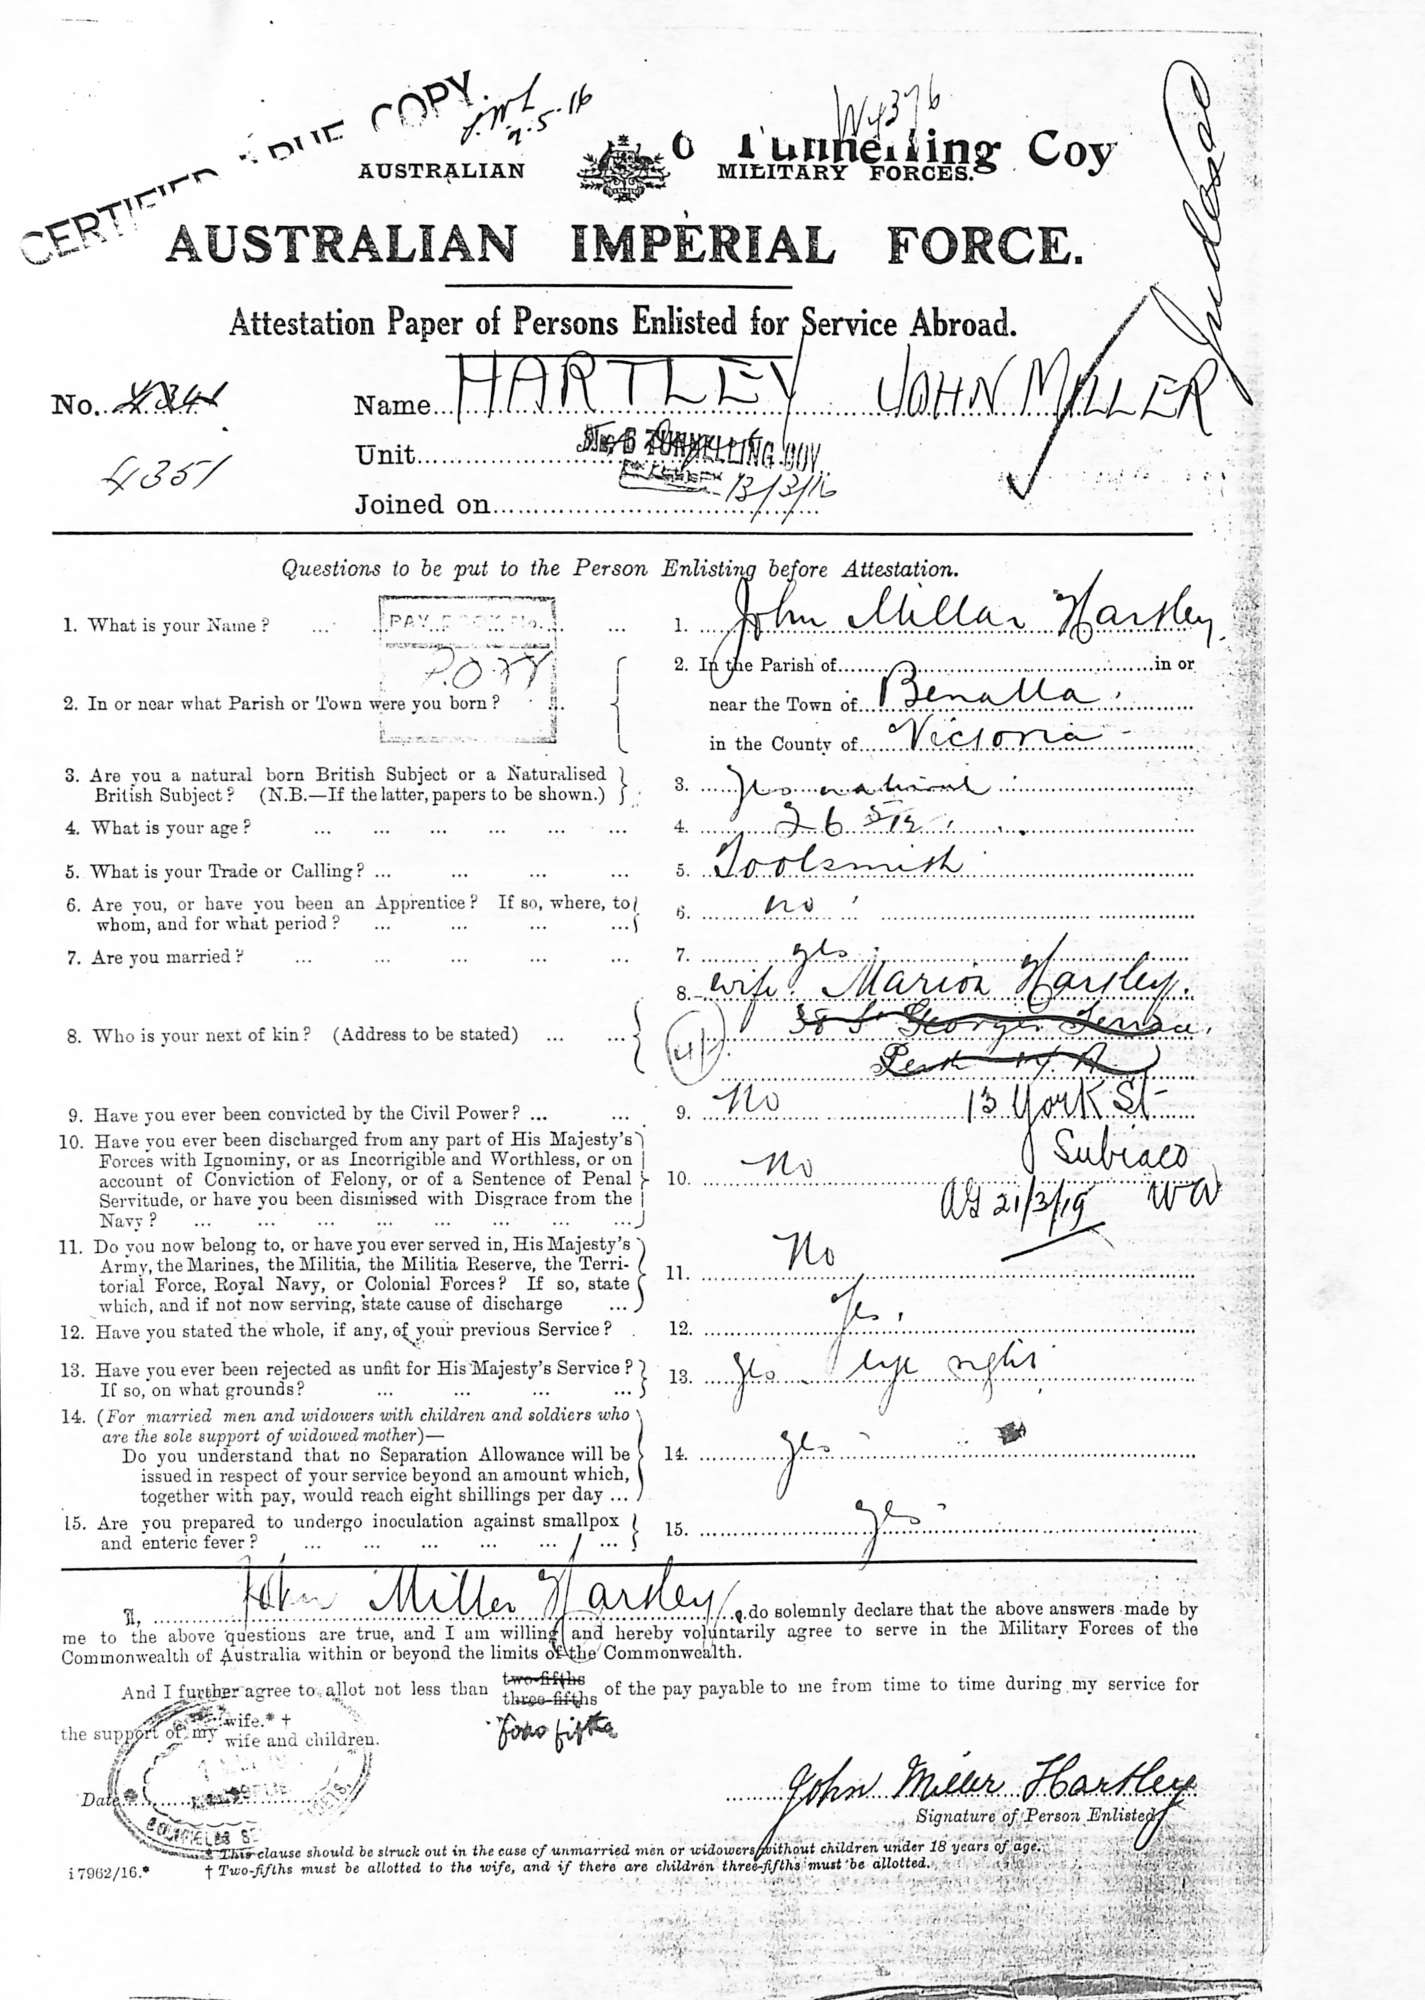 CERTIFIED TRUE COPY.
2.5.16
W4376
6 Tunnelling Coy
AUSTRALIAN MILITARY FORCES.
AUSTRALIAN IMPERIAL FORCE.
Attestation Paper of Persons Enlisted for Service Abroad.
No. 4341 Name HARTLEY JOHN MILLER
4351
Unit No. 6 TUNNELLING COY
Joined on 13/3/16
Questions to be put to the Person Enlisting before Attestation.
1. What is your Name? ... 1. John Millar Hartley
PAY BOOK No.
2. In or near what Parish or Town were you born? 2. In the Parish of in or
near the Town of Benalla
in the County of Victoria
3. Are you a natural born British Subject or a Naturalised
British Subject? (N.B.—If the latter, papers to be shown.) 3. Yes natural
4. What is your age? 4. 26 5/12
5. What is your Trade or Calling? 5. Toolsmith
6. Are you, or have you been an Apprentice? If so, where, to
whom, and for what period? 6. no
7. Are you married? 7. yes
8. Who is your next of kin? (Address to be stated) 8. wife Marion Hartley.
38 St Georges Terrace
Perth W.A.
13 York St
Subiaco
WA
21/3/19
9. Have you ever been convicted by the Civil Power? 9. No
10. Have you ever been discharged from any part of His Majesty's
Forces with Ignominy, or as Incorrigible and Worthless, or on
account of Conviction of Felony, or of a Sentence of Penal
Servitude, or have you been dismissed with Disgrace from the
Navy? 10. No
11. Do you now belong to, or have you ever served in, His Majesty's
Army, the Marines, the Militia, the Militia Reserve, the Terri-
torial Force, Royal Navy, or Colonial Forces? If so, state
which, and if not now serving, state cause of discharge 11. No
12. Have you stated the whole, if any, of your previous Service? 12. Yes.
13. Have you ever been rejected as unfit for His Majesty's Service?
If so, on what grounds? 13. yes eye sight
14. (For married men and widowers with children and soldiers who
are the sole support of widowed mother)—
Do you understand that no Separation Allowance will be
issued in respect of your service beyond an amount which,
together with pay, would reach eight shillings per day ... 14. yes
15. Are you prepared to undergo inoculation against smallpox
and enteric fever? 15. yes
I, John Miller Hartley, do solemnly declare that the above answers made by
me to the above questions are true, and I am willing and hereby voluntarily agree to serve in the Military Forces of the
Commonwealth of Australia within or beyond the limits of the Commonwealth.
And I further agree to allot not less than two-fifths three-fifths of the pay payable to me from time to time during my service for
the support of my wife.* † wife and children.
Date
John Miller Hartley
Signature of Person Enlisted.
* This clause should be struck out in the case of unmarried men or widowers without children under 18 years of age.
i 7962/16.* † Two-fifths must be allotted to the wife, and if there are children three-fifths must be allotted.